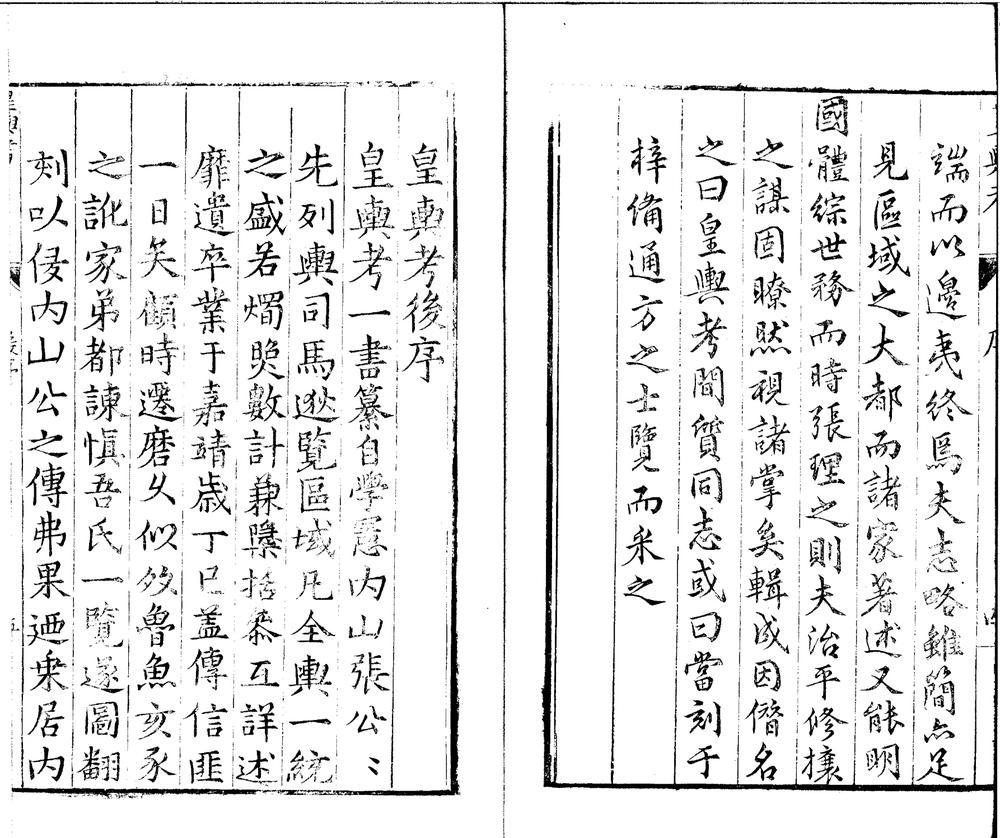 端而以邊夷終焉夫志略雖簡亦足
見區域之大都而諸家著述又能明
國體綜世務而時張理之則夫治平修攘
之謀固瞭然視諸掌矣輯成因僭名
之曰皇輿考間質同志或曰當刻于
梓備通方之士覽而采之
皇輿考後序
皇輿考一書纂自學憲内山張公〻
先列輿司馬逖覽區域凡全輿一統
之盛若燭照數計兼櫽括叅互詳述
靡遺卒業于嘉靖歲丁巳盖傳信匪
一日矣顧時遷磨乆似效魯魚亥豕
之訛家弟都諫慎吾氏一覽遂圖翻
刻以侵内山公之傳弗果迺来居内